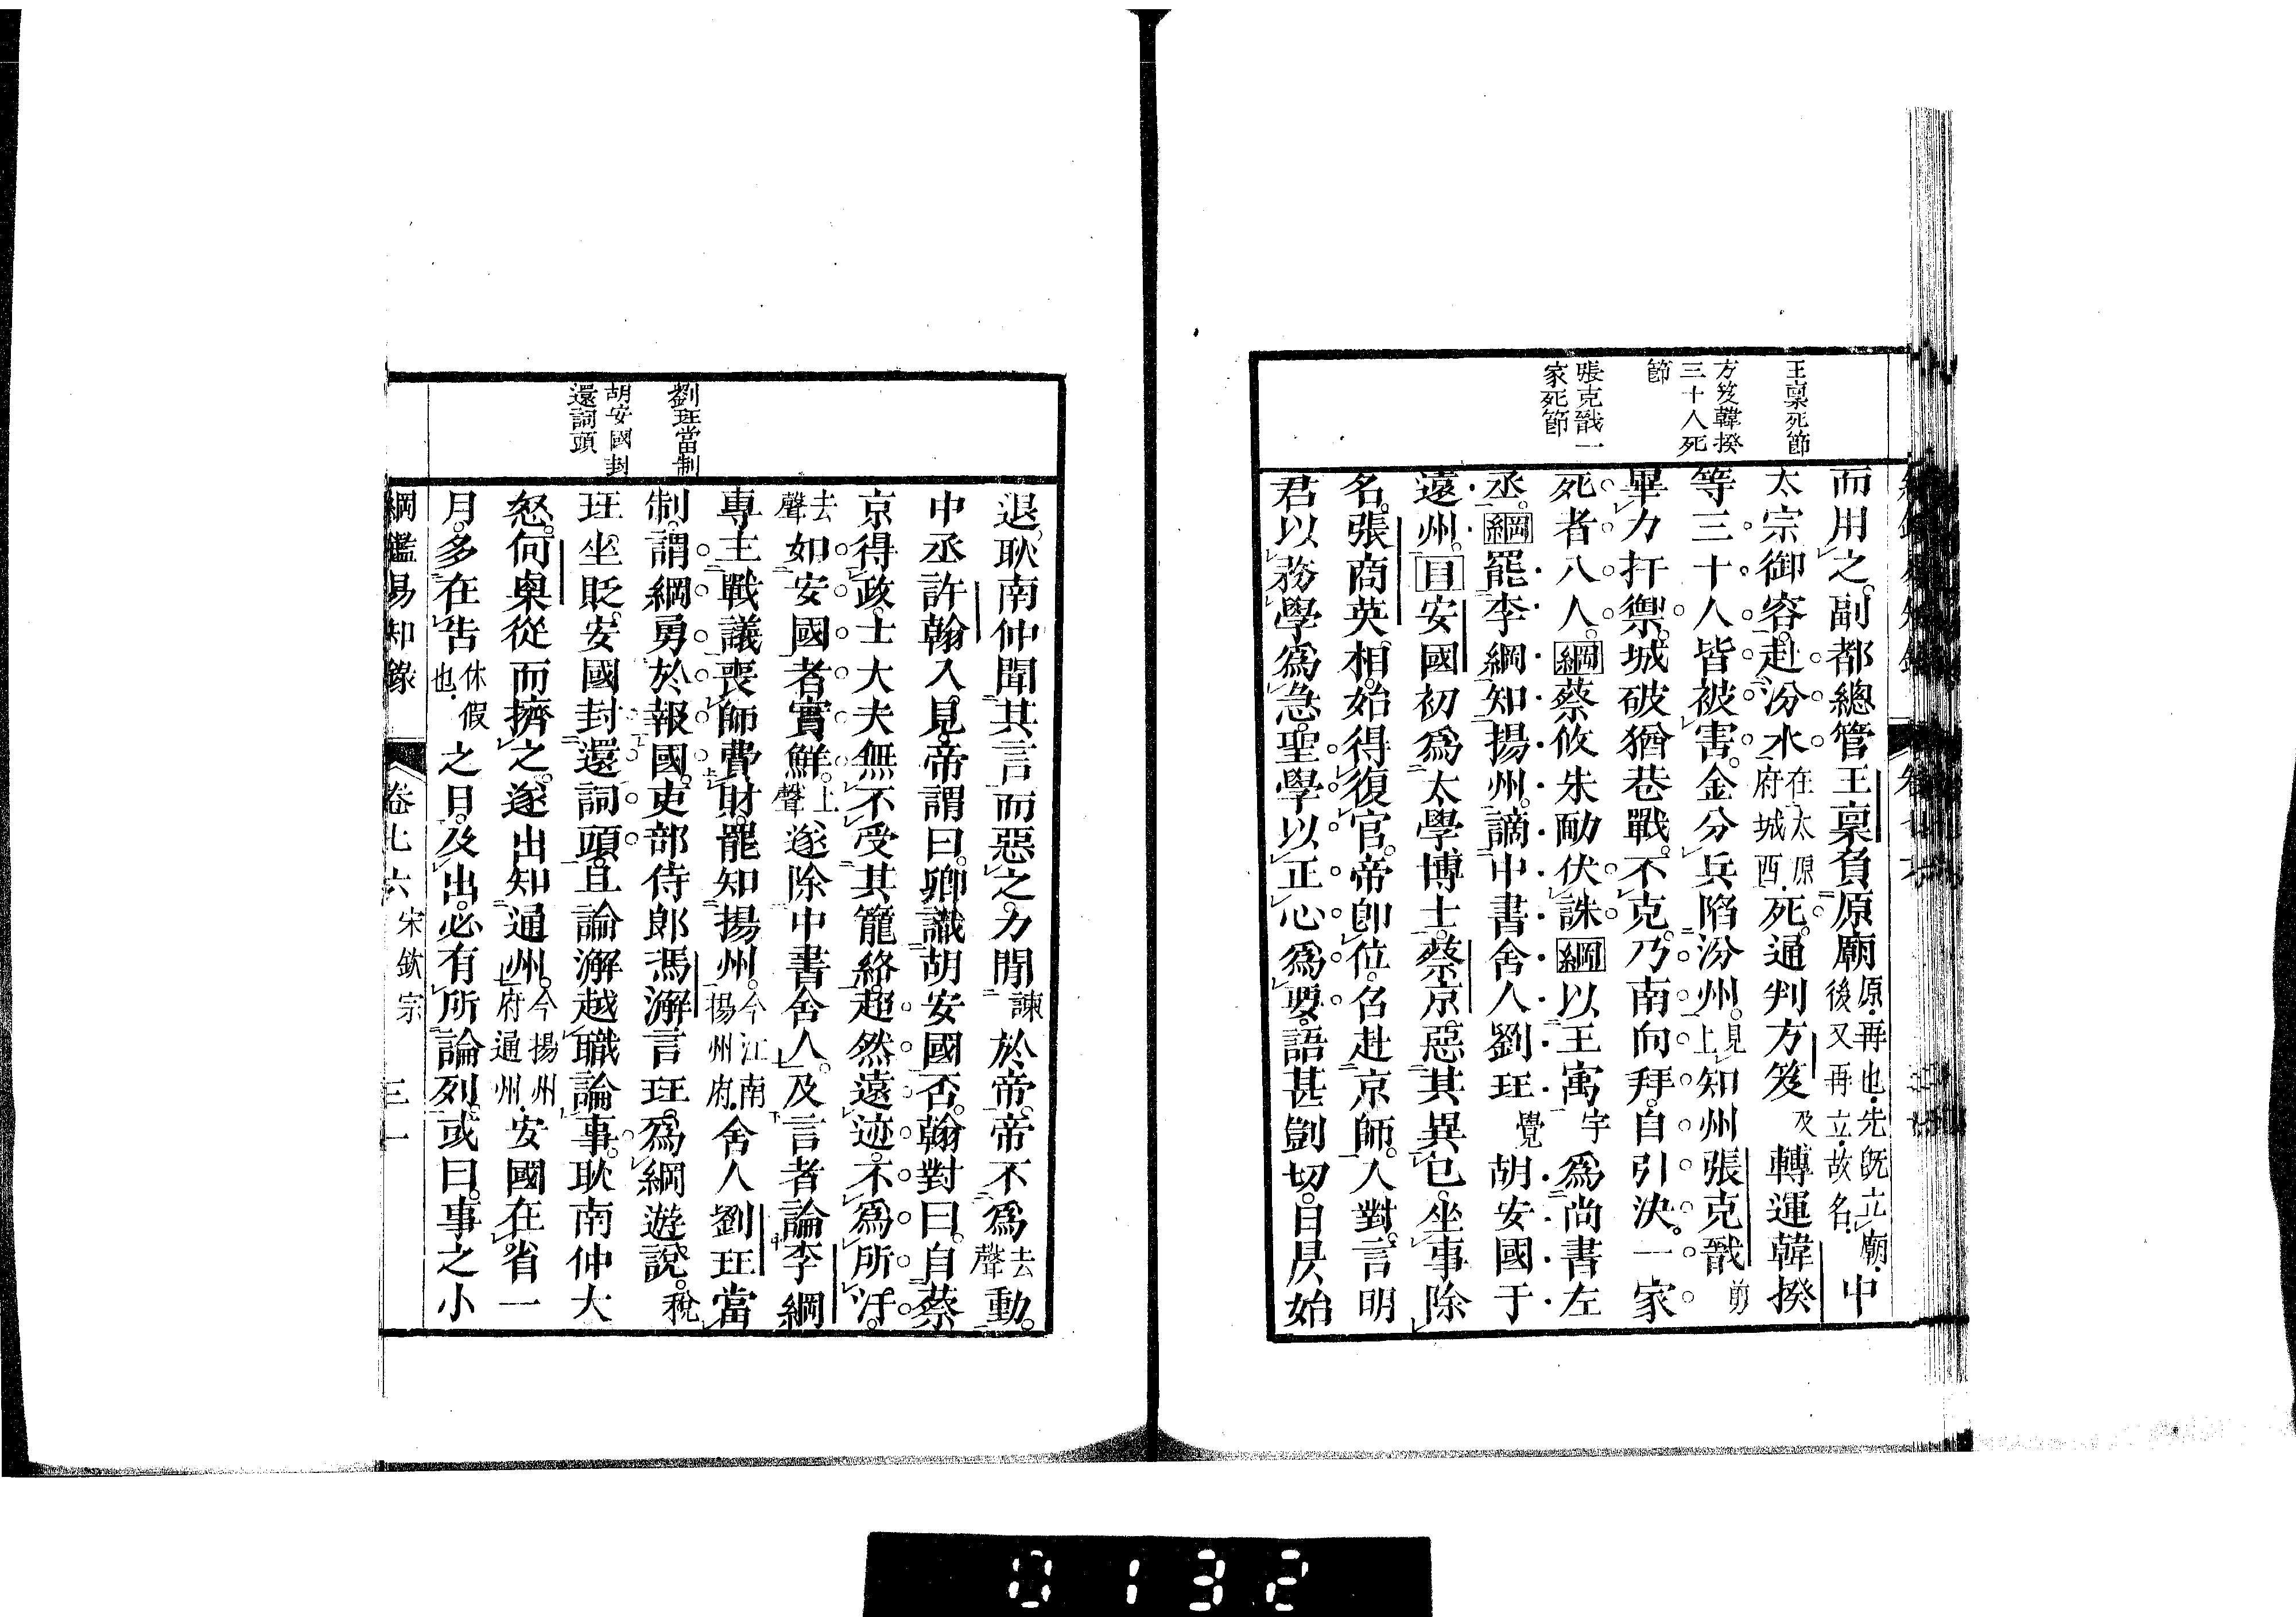 王稟死節
方笈韓揆
三十人死
節
張克戩一
家死節
而用之。副都總管王稟負原廟原。再也。先既立廟。後又再立。故名。中
太宗御容。赴汾水在太原府城西。死。通判方笈及轉運韓揆
等三十人皆被害。金分兵陷汾州。見上知州張克戩剪
畢力扞禦。城破猶巷戰。不克。乃南向拜。自引決。一家
死者八人。綱蔡攸朱勔伏誅綱以王㝢宇為尚書左
丞。綱罷李綱知揚州。謫中書舍人劉珏覺胡安國于
遠州。目安國初為太學博士。蔡京惡其異己。坐事除
名。張商英相。始得復官。帝即位。召赴京師。入對。言明
君以務學為急。聖學以正心為要。語甚剴切。日昃始
劉珏當制
胡安國封
還詞頭
退。耿南仲聞其言而惡之。力閒諫於帝。帝不為去聲動。
中丞許翰入見。帝謂曰。卿識胡安國否。翰對曰。自蔡
京得政。士大夫無不受其籠絡。超然遠迹。不為所汙。
去聲如安國者實鮮。上聲、遂除中書舍人。及言者論李綱
專主戰議。喪師費財。罷知揚州。今江南揚州府。舍人劉珏當
制。謂綱勇於報國。吏部侍郎馮澥言珏。為綱遊說。稅
珏坐貶。安國封還詞頭。且論澥越職論事。耿南仲大
怒。何㮚從而擠之。遂出知通州。今揚州府通州。安國在省一
月。多在告休假也。之日。及出。必有所論列。或曰。事之小
綱鑑易知錄　卷七六　宋欽宗　三一
0132